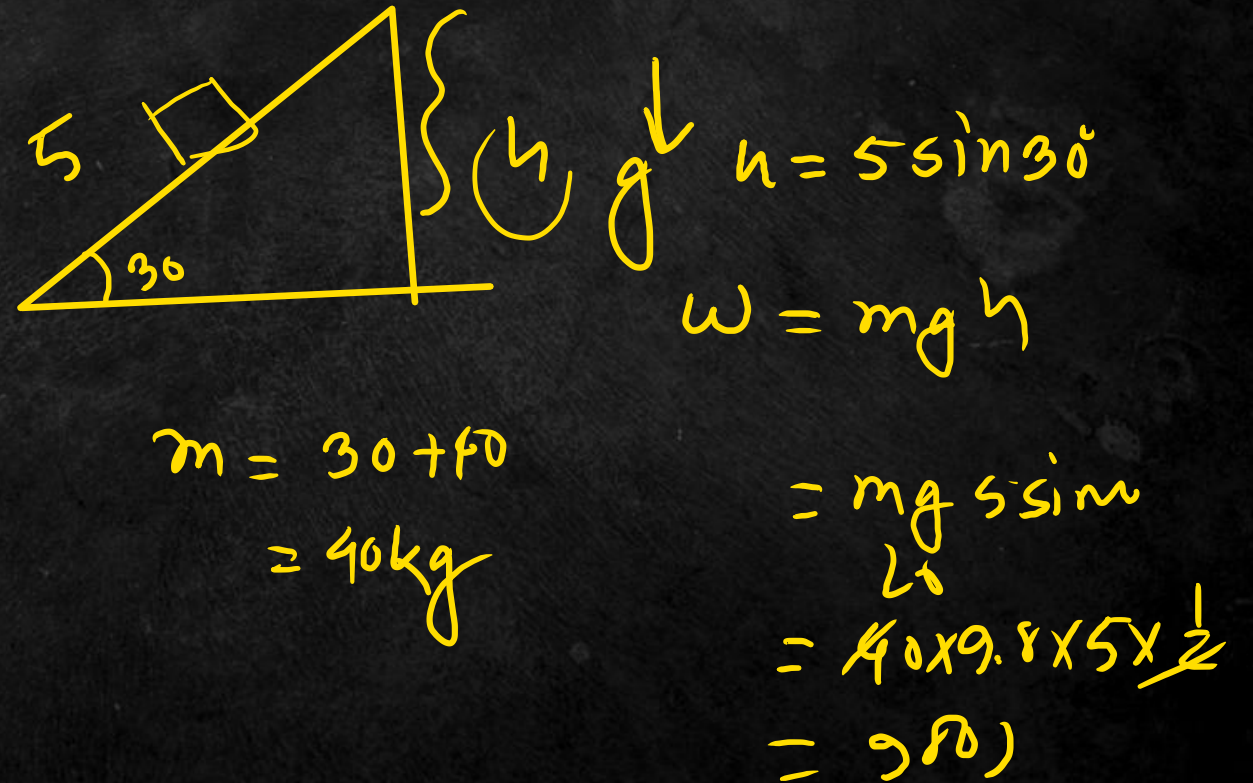 5
30
h
g
h = 5 sin 30°
W = mgh
m = 30 + 10
= 40kg
= mg 5 sin
20
= 40 x 9.8 x 5 x 1/2
= 980 J